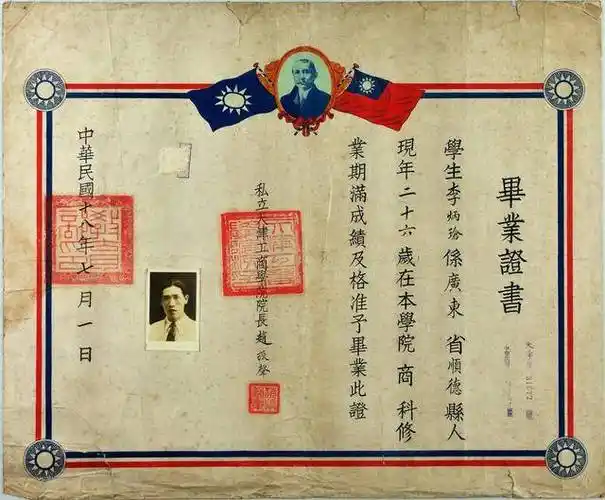 畢業證書
學生李炳 係廣東省順德縣人
現年二十六歲在本學院商科修
業期滿成績及格准予畢業此證
私立天津工商學院院長趙振聲
中華民國 八年七月一日